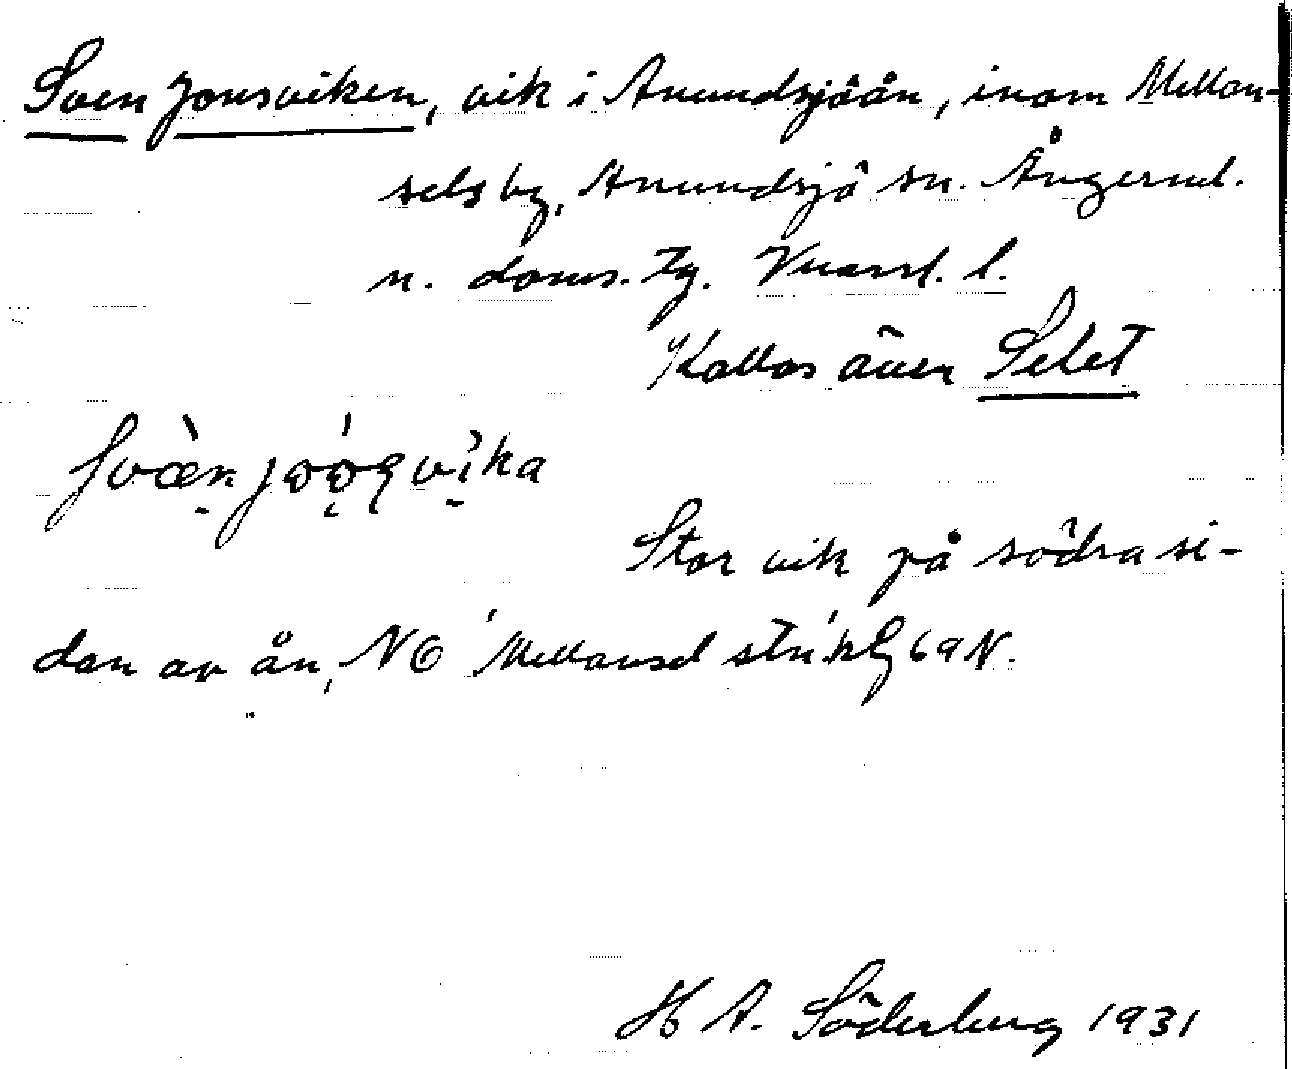 Sven Jonsviken, vik i Anundsjöån, inom Mellan-
sels by, Anundsjö sn. Ångerml.
n. doms. tg. Vnorrl. l.
Kallas även Selet
Stor vik på södra si-
dan av ån, NO Mellansel stn kbl 69 N.
H A. Söderberg 1931